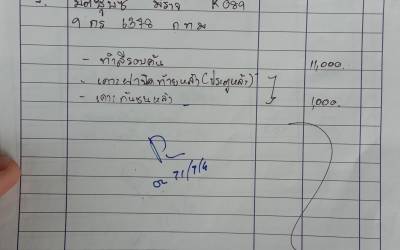 มิตซูบิชิ มิราจ R089
9 กร 6378 กทม
- ทำสีรอบคัน 11,000.
- เคาะฝาปิดท้ายหลัง (ประตูหลัง)
- เคาะกันชนหลัง 1,000.